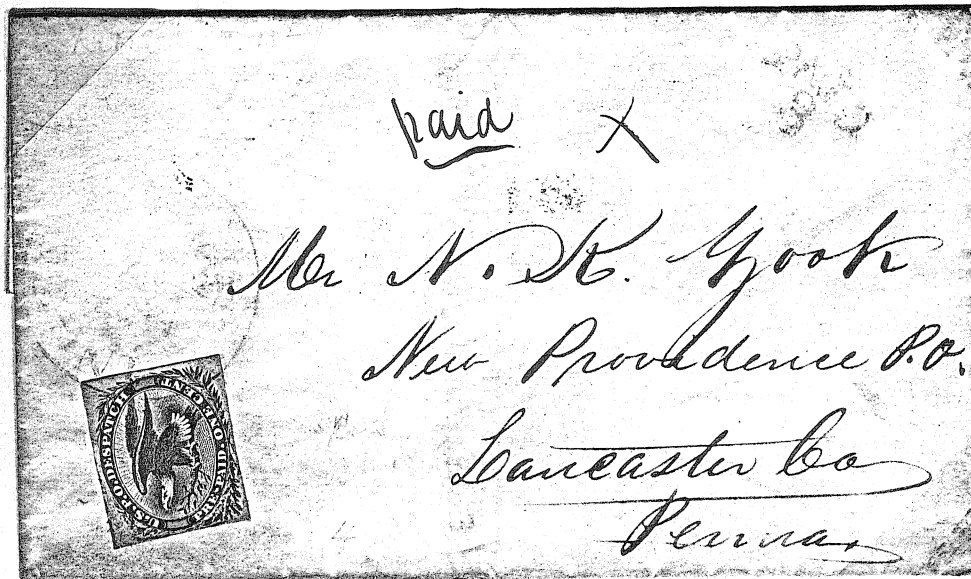 paid X
Mr N. K. Yook
New Providence P.O.
Lancaster Co
Penna.
U.S.P.O. DESPATCH
PRE-PAID ONE CENT